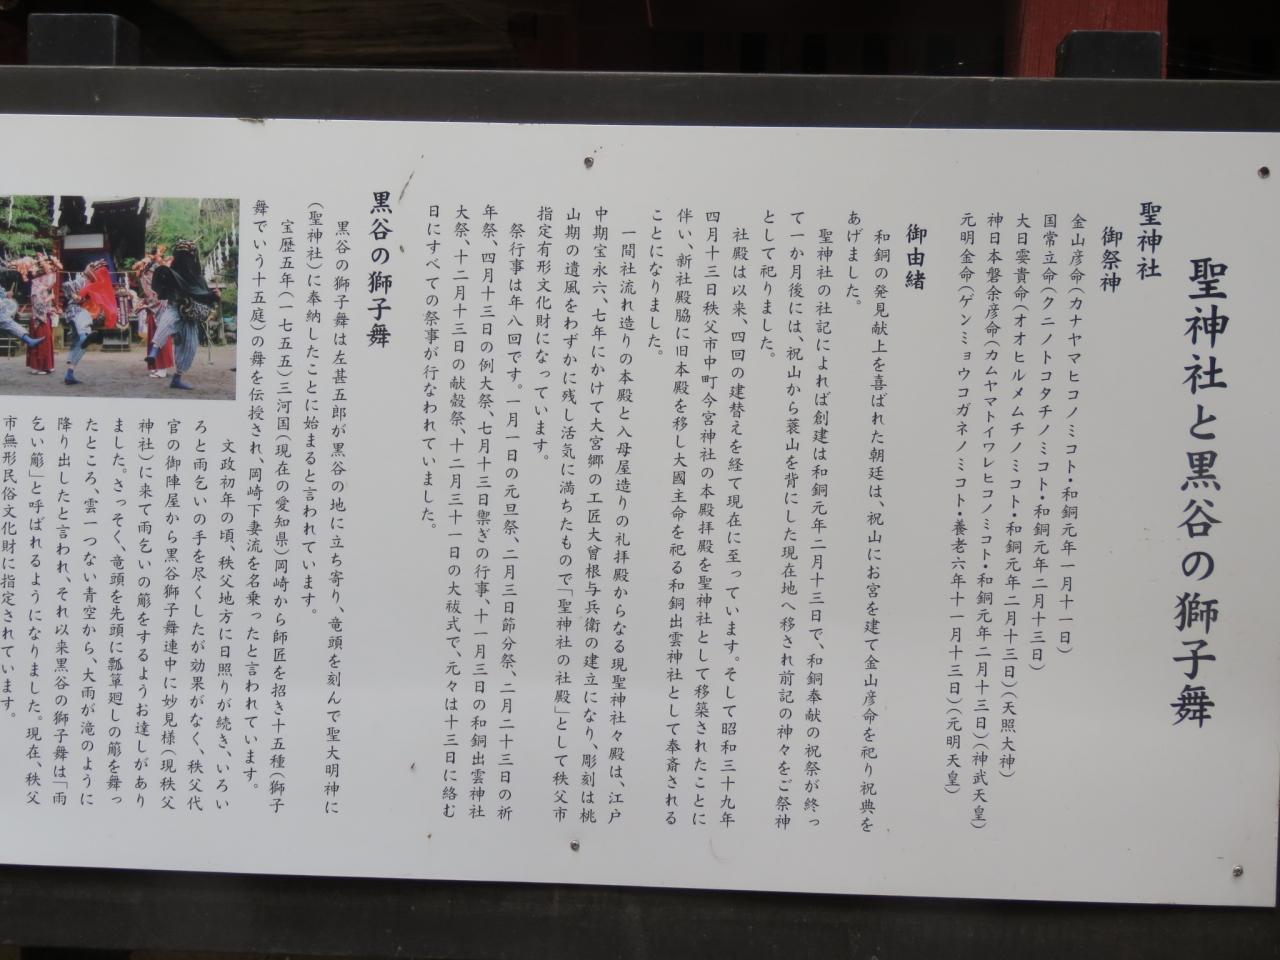 聖神社と黒谷の獅子舞
聖神社
御祭神
金山彦命(カナヤマヒコノミコト・和銅元年一月十一日)
国常立命(クニノトコタチノミコト・和銅元年二月十三日)
大日孁貴命(オオヒルメムチノミコト・和銅元年二月十三日)(天照大神)
神日本磐余彦命(カムヤマトイワレヒコノミコト・和銅元年二月十三日)(神武天皇)
元明金命(ゲンミョウコガネノミコト・養老六年十一月十三日)(元明天皇)
御由緒
和銅の発見献上を喜ばれた朝廷は、祝山にお宮を建て金山彦命を祀り祝典を
あげました。
聖神社の社記によれば創建は和銅元年二月十三日で、和銅奉献の祝祭が終っ
て一か月後には、祝山から蓑山を背にした現在地へ移され前記の神々をご祭神
として祀りました。
社殿は以来、四回の建替えを経て現在に至っています。そして昭和三十九年
四月十三日秩父市中町今宮神社の本殿拝殿を聖神社として移築されたことに
伴い、新社殿脇に旧本殿を移し大國主命を祀る和銅出雲神社として奉斎される
ことになりました。
一間社流れ造りの本殿と入母屋造りの礼拝殿からなる現聖神社々殿は、江戸
中期宝永六、七年にかけて大宮郷の工匠大曾根与兵衛の建立になり、彫刻は桃
山期の遺風をわずかに残し活気に満ちたもので「聖神社の社殿」として秩父市
指定有形文化財になっています。
祭行事は年八回です。一月一日の元旦祭、二月三日節分祭、二月二十三日の祈
年祭、四月十三日の例大祭、七月十三日禦ぎの行事、十一月三日の和銅出雲神社
大祭、十二月十三日の献穀祭、十二月三十一日の大祓式で、元々は十三日に絡む
日にすべての祭事が行なわれていました。
黒谷の獅子舞
黒谷の獅子舞は左甚五郎が黒谷の地に立ち寄り、竜頭を刻んで聖大明神に
(聖神社)に奉納したことに始まると言われています。
宝歴五年(一七五五)三河国(現在の愛知県)岡崎から師匠を招き十五種(獅子
舞でいう十五庭)の舞を伝授され、岡崎下妻流を名乗ったと言われています。
文政初年の頃、秩父地方に日照りが続き、いろい
ろと雨乞いの手を尽くしたが効果がなく、秩父代
官の御陣屋から黒谷獅子舞連中に妙見様(現秩父
神社)に来て雨乞いの簓をするようお達しがあり
ました。さっそく、竜頭を先頭に瓢箪廻しの簓を舞っ
たところ、雲一つない青空から、大雨が滝のように
降り出したと言われ、それ以来黒谷の獅子舞は「雨
乞い簓」と呼ばれるようになりました。現在、秩父
市無形民俗文化財に指定されています。